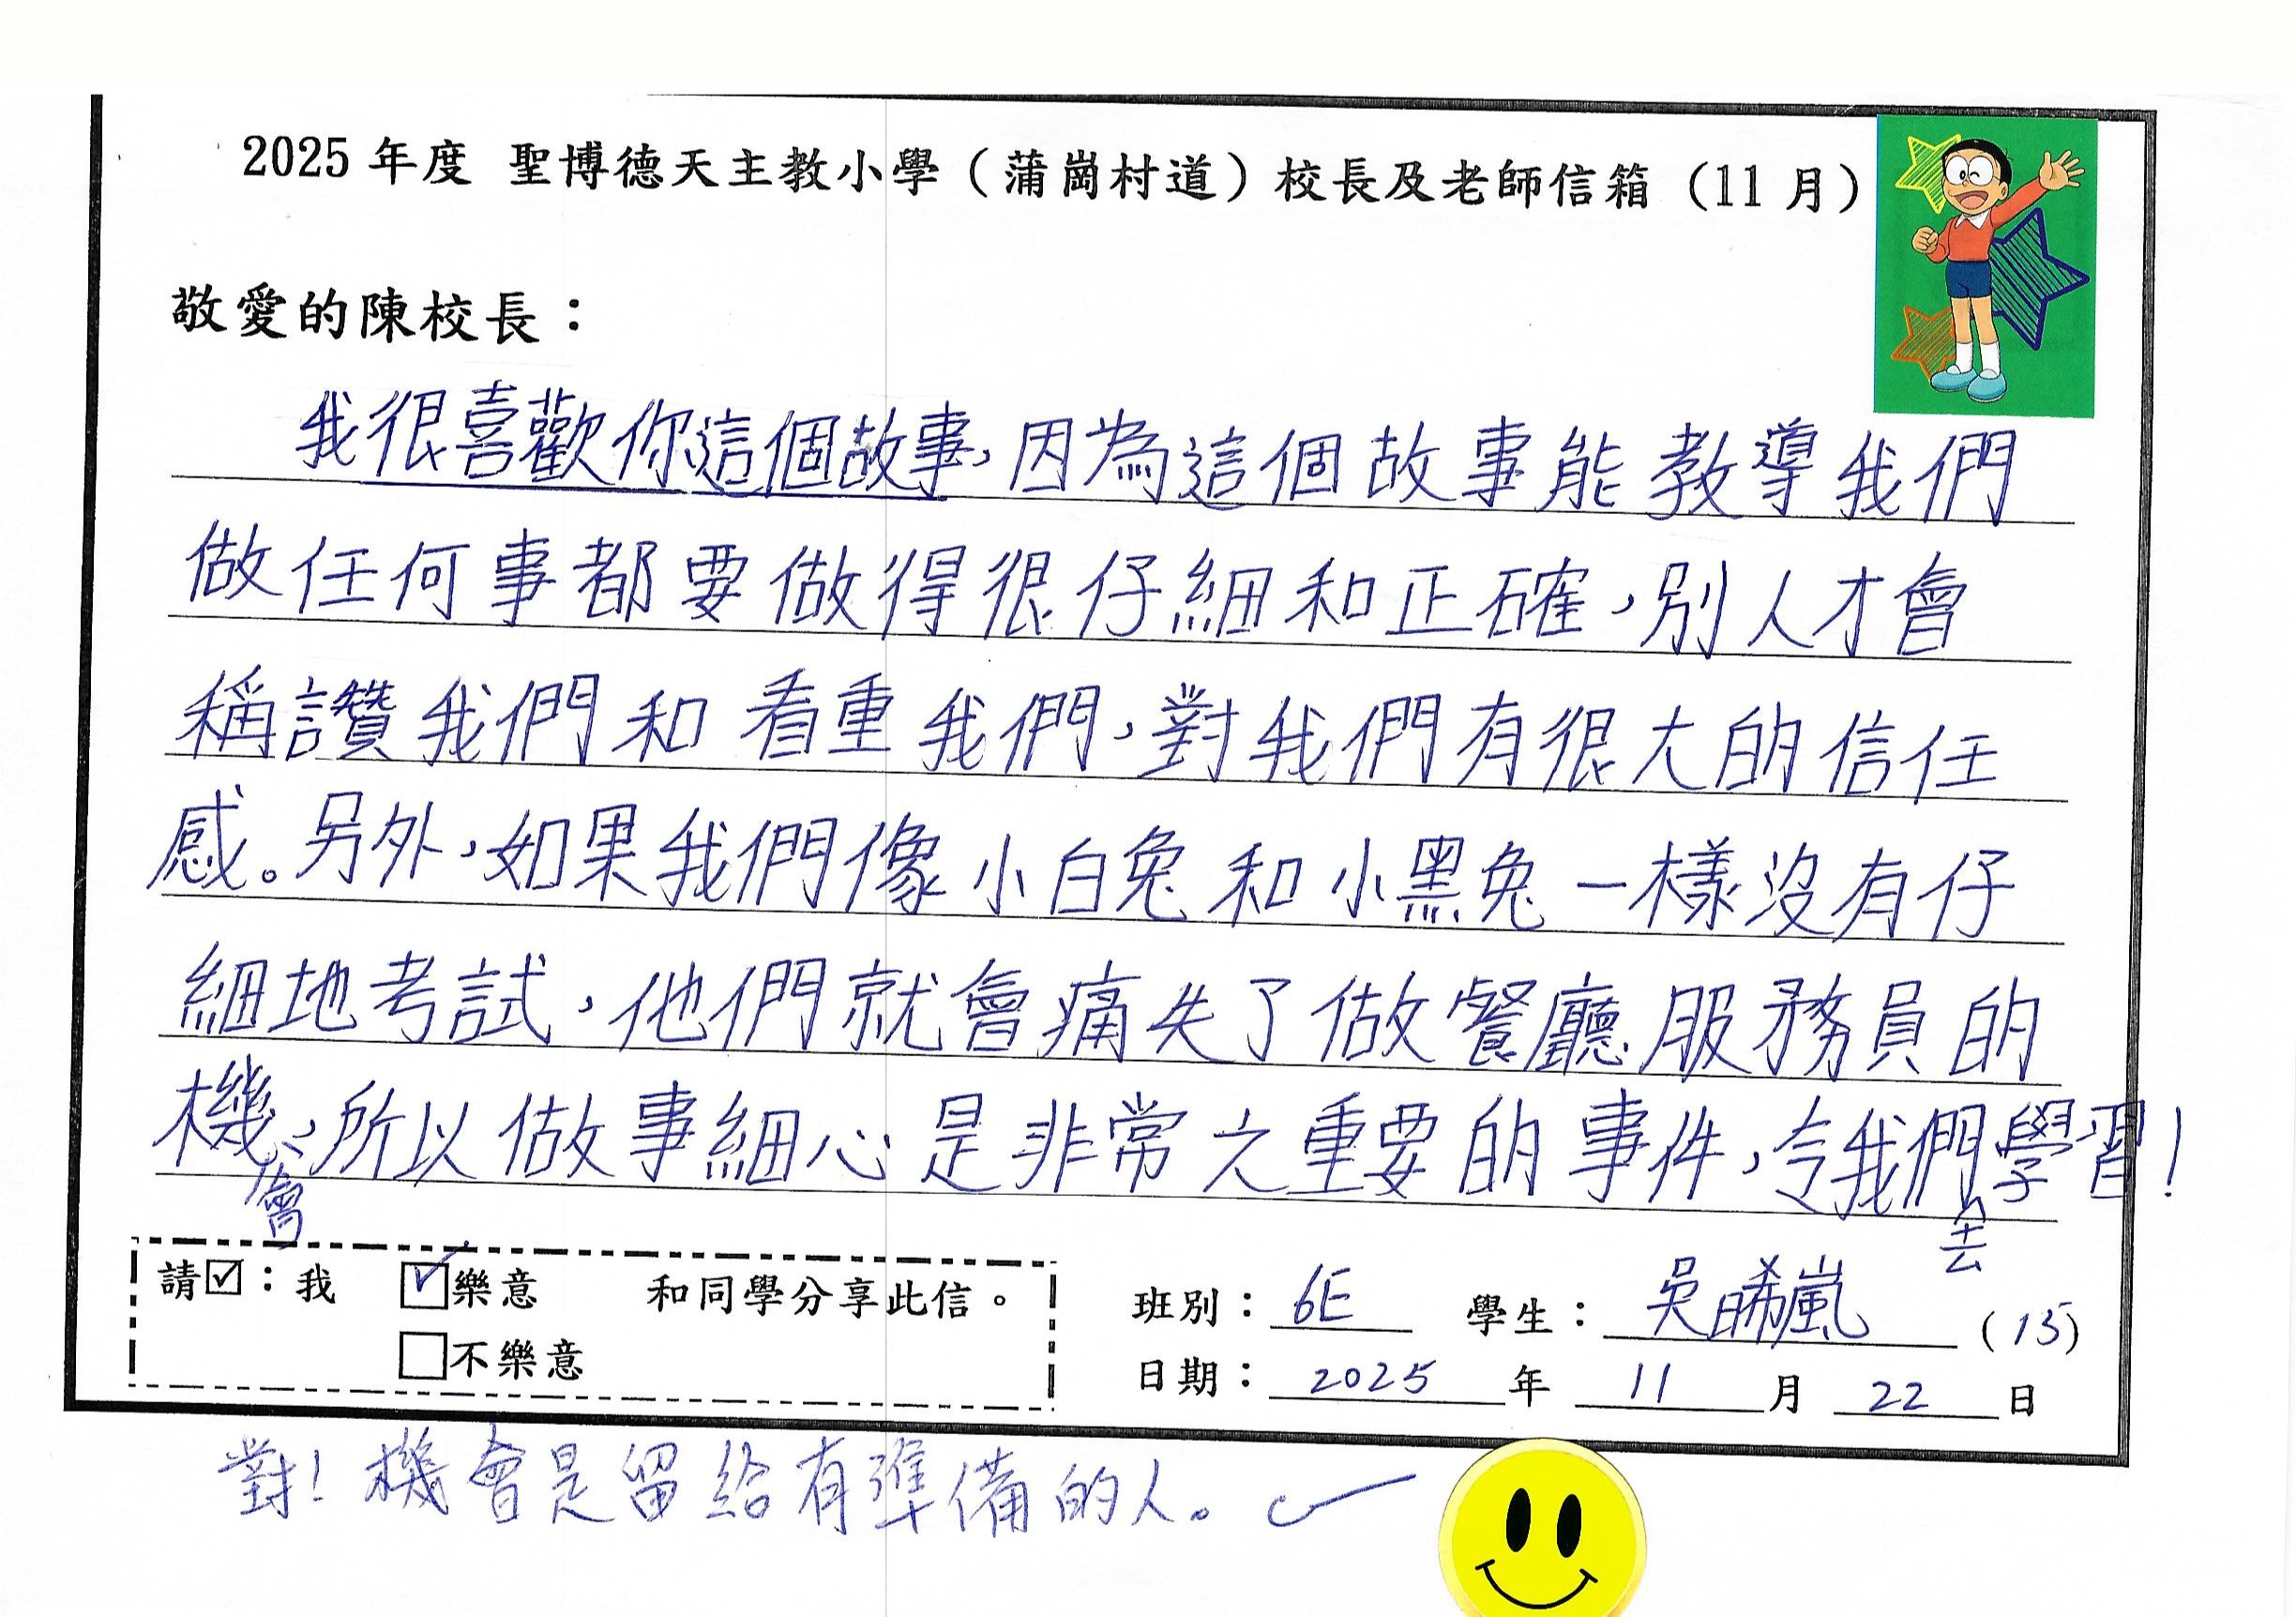 2025 年度 聖博德天主教小學（蒲崗村道）校長及老師信箱（11 月）
敬愛的陳校長：
我很喜歡你這個故事，因為這個故事能教導我們
做任何事都要做得很仔細和正確，別人才會
稱讚我們和看重我們，對我們有很大的信任
感。另外，如果我們像小白兔和小黑兔一樣沒有仔
細地考試，他們就會痛失了做餐廳服務員的
機會，所以做事細心是非常之重要的事件，令我們去學習！
請☑：我 ☑樂意 和同學分享此信。
□不樂意
班別：6E 學生：吳晞嵐 (15)
日期：2025 年 11 月 22 日
對！機會是留給有準備的人。